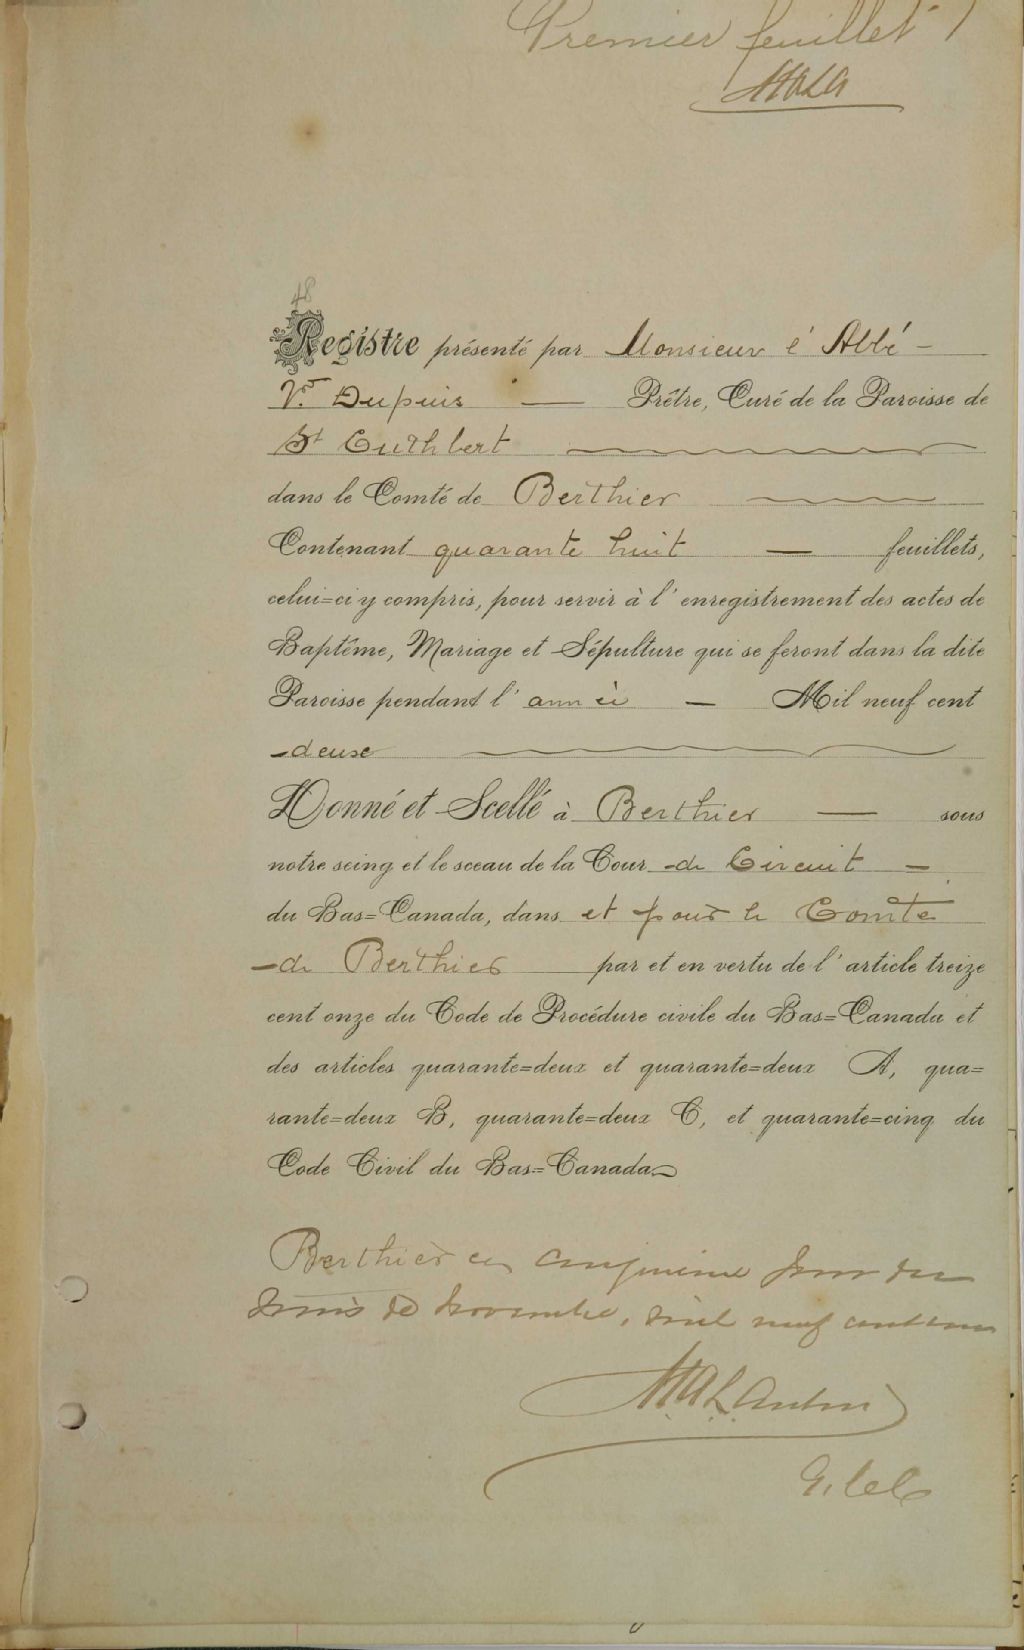 Premier feuillet
48
Registre présenté par Monsieur l'Abbé
Vr Dupuis — Prêtre, Curé de la Paroisse de
St Cuthbert
dans le Comté de Berthier
Contenant quarante huit — feuillets,
celui=ci y compris, pour servir à l'enregistrement des actes de
Baptême, Mariage et Sépulture qui se feront dans la dite
Paroisse pendant l'année — Mil neuf cent
deuse
Donné et Scellé à Berthier — sous
notre seing et le sceau de la Cour de Circuit —
du Bas=Canada, dans et pour le Comté
de Berthier par et en vertu de l'article treize
cent onze du Code de Procédure civile du Bas=Canada et
des articles quarante=deux et quarante=deux A, qua=
rante=deux B, quarante=deux C, et quarante=cinq du
Code Civil du Bas=Canada
Berthier ce cinquieme jour du
mois de novembre, mil neuf cent